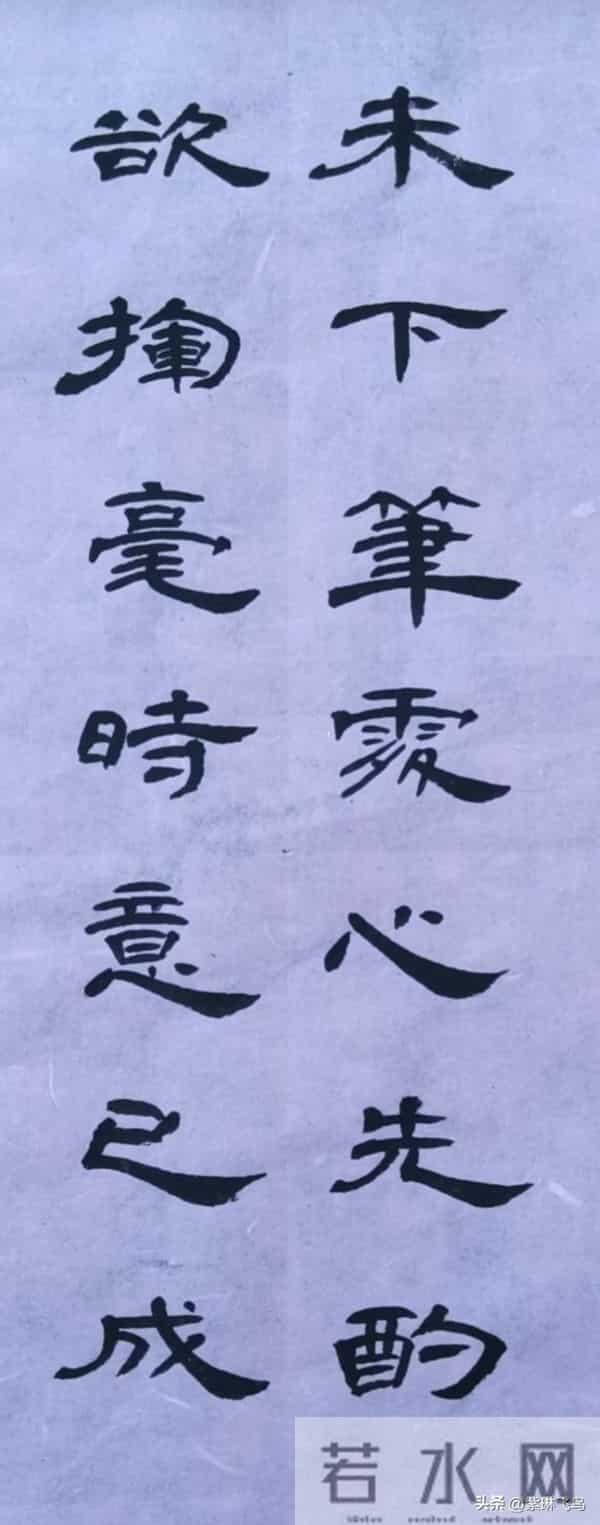 未下筆處心先酌
欲揮毫時意已成
若水网
头条 @紫琳飞鸟